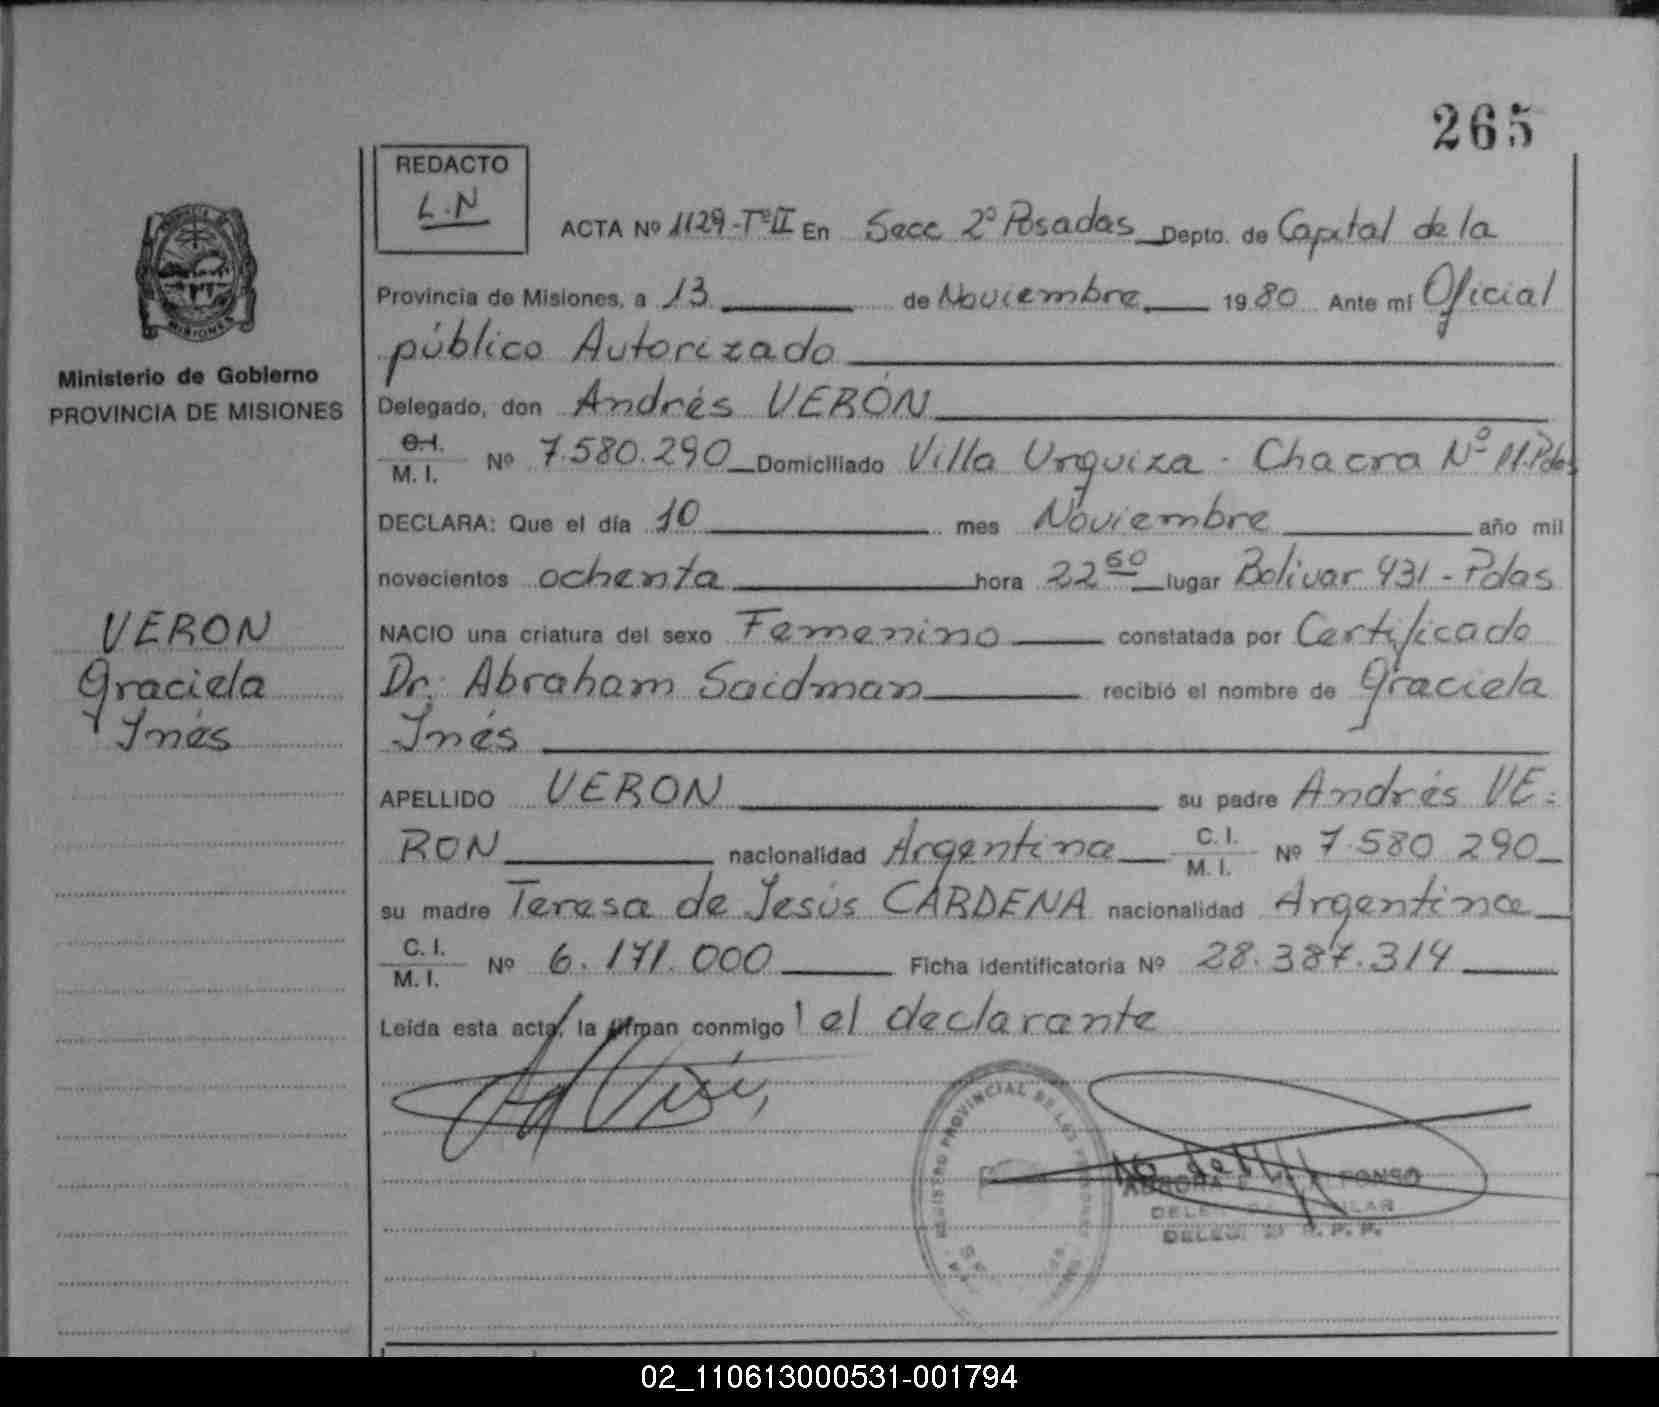 265
REDACTO
L.N
ACTA Nº 1129-TºII En Secc 2º Posadas Depto. de Capital de la
Provincia de Misiones, a 13 de Noviembre 1980 Ante mi Oficial
público Autorizado
Delegado, don Andrés VERÓN
C.I. M.I. Nº 7.580.290 Domiciliado Villa Urquiza - Chacra Nº 11. Pdas
DECLARA: Que el día 10 mes Noviembre año mil
novecientos ochenta hora 22 lugar Bolivar 431 - Pdas
NACIO una criatura del sexo Femenino constatada por Certificado
Dr. Abraham Saidman recibió el nombre de Graciela
Inés
APELLIDO VERON su padre Andrés VE-
RON nacionalidad Argentina C.I. M.I. Nº 7.580 290
su madre Teresa de Jesús CARDENA nacionalidad Argentina
C.I. M.I. Nº 6.171.000 Ficha identificatoria Nº 28.387.314
Leída esta acta, la firman conmigo el declarante
Ministerio de Gobierno
PROVINCIA DE MISIONES
VERON
Graciela
Inés
MISIONES
REGISTRO PROVINCIAL DE LAS
DELEG. R.P.P.
02_110613000531-001794